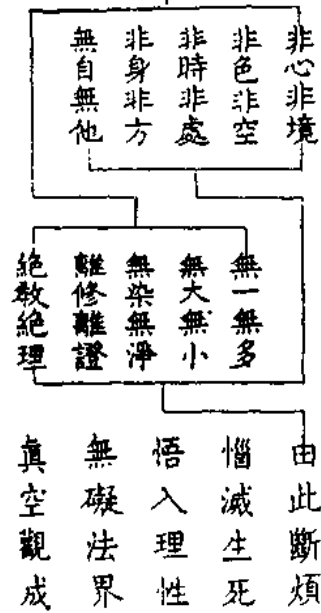 非心非境
非色非空
非時非處
非身非方
無自無他
無一無多
無大無小
無染無淨
離修離證
絕教絕理
由此斷煩
惱滅生死
悟入理性
無礙法界
真空觀成